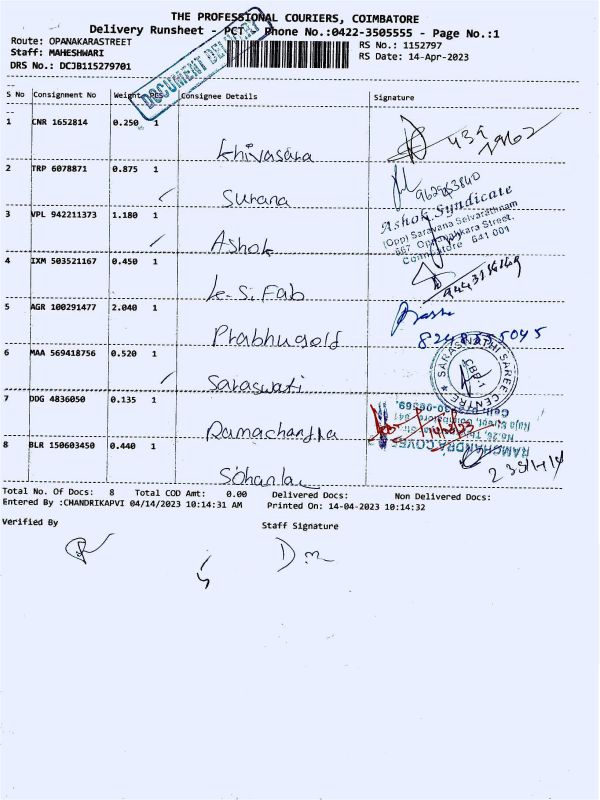 THE PROFESSIONAL COURIERS, COIMBATORE
Delivery Runsheet - PCT Phone No.:0422-3505555 - Page No.:1
Route: OPANAKARASTREET
RS No.: 1152797
Staff: MAHESHWARI
RS Date: 14-Apr-2023
DRS No.: DCJB115279701
DOCUMENT DELIVERY
S No Consignment No Weight PCS Consignee Details Signature
1 CNR 1652814 0.250 1 Khivasara
2 TRP 6078871 0.875 1 Surana
3 VPL 942211373 1.180 1 Ashok
Ashok Syndicate
(Opp) Saravana Selvarathnam
Street,
Coimbatore 641 001
4 IXM 503521167 0.450 1 Fab
5 AGR 100291477 2.040 1 Prabhugold
8248355045
6 MAA 569418756 0.520 1 Saraswati
SARASWATHI SAREE CENTRE
CBE-1
7 DDG 4836050 0.135 1
8 BLR 150603450 0.440 1 Sohanlal
Total No. Of Docs: 8 Total COD Amt: 0.00 Delivered Docs: Non Delivered Docs:
Entered By :CHANDRIKAPVI 04/14/2023 10:14:31 AM Printed On: 14-04-2023 10:14:32
Verified By Staff Signature